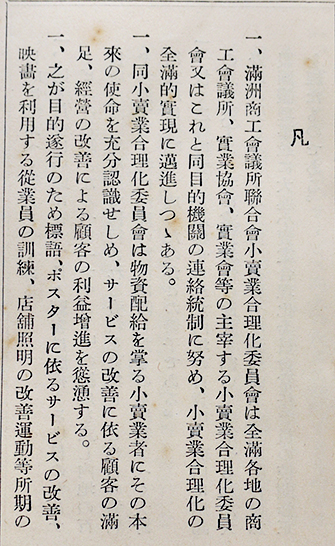 凡
一、滿洲商工會議所聯合會小賣業合理化委員會は全滿各地の商
工會議所、實業協會、實業會等の主宰する小賣業合理化委員
會又はこれと同目的機關の連絡統制に努め、小賣業合理化の
全滿的實現に邁進しつゝある。
一、同小賣業合理化委員會は物資配給を掌る小賣業者にその本
來の使命を充分認識せしめ、サービスの改善に依る顧客の滿
足、經營の改善による顧客の利益增進を慫慂する。
一、之が目的遂行のため標語、ポスターに依るサービスの改善、
映畫を利用する從業員の訓練、店舖照明の改善運動等所期の